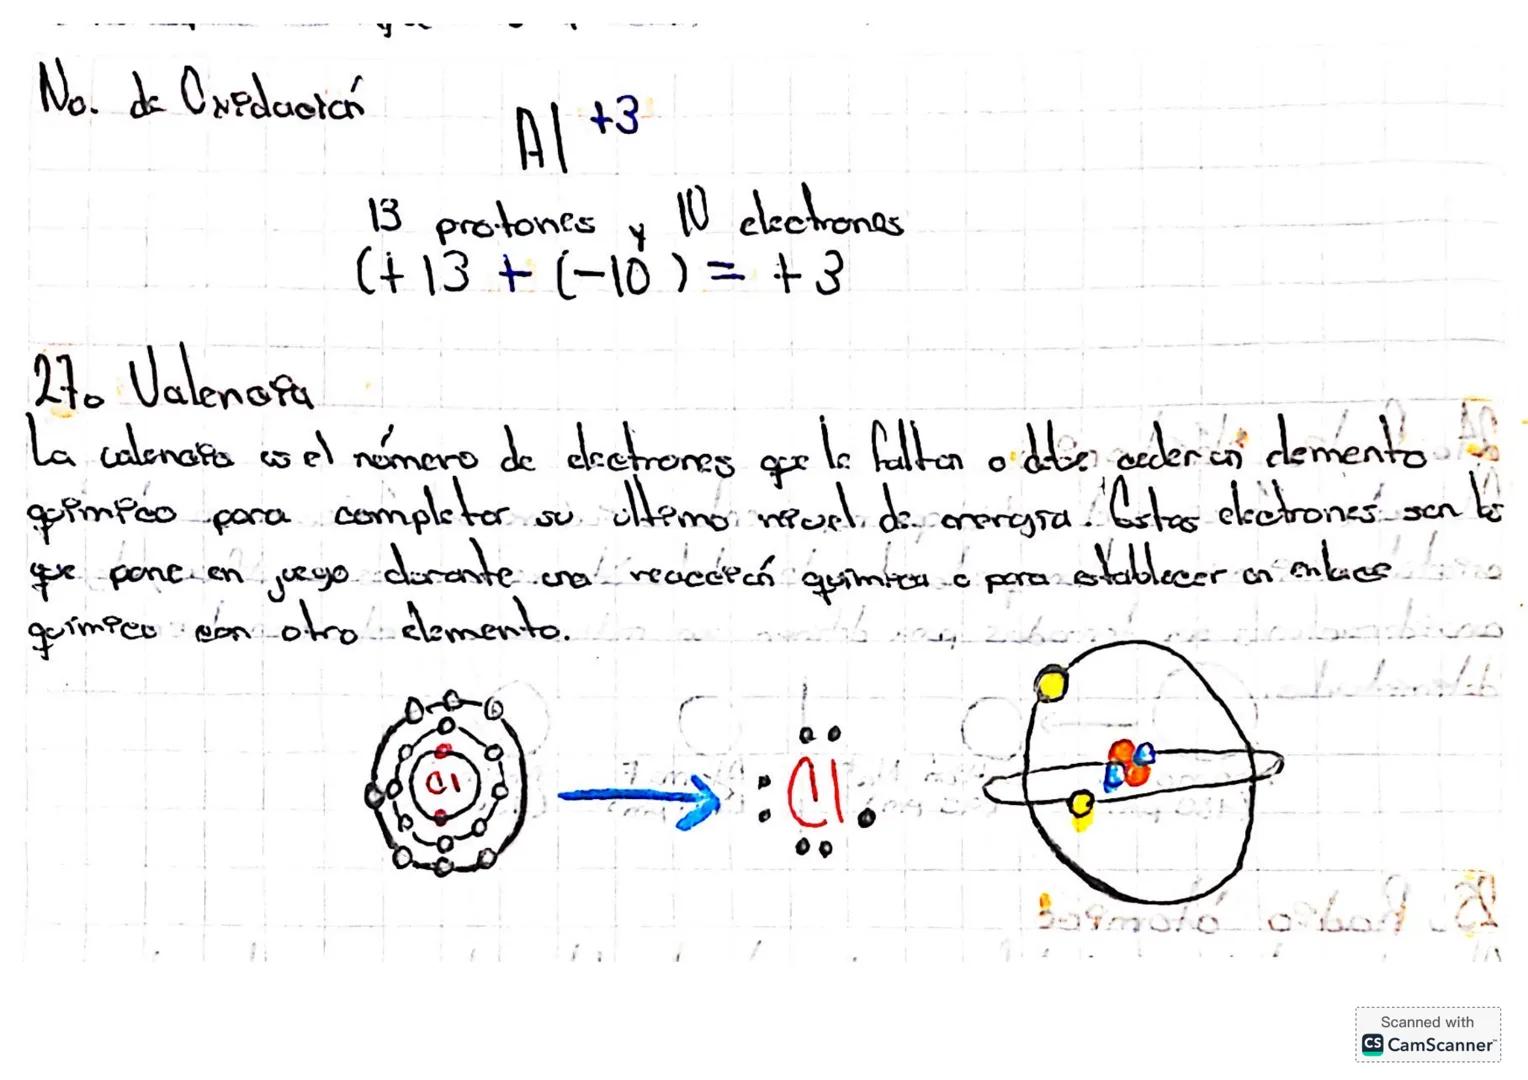 No. de Oxidación
Al +3
13 protones y 10 electrones
(+13 + (-10) = +3
27. Valencia
La valencia es el número de electrones que le faltan o debe ceder un elemento
químico para completar su último nivel de energía. Estos electrones son los
que pone en juego durante una reacción química o para establecer un enlace
químico con otro elemento.
Cl
Cl
25. Radio atómico
Scanned with
CS CamScanner